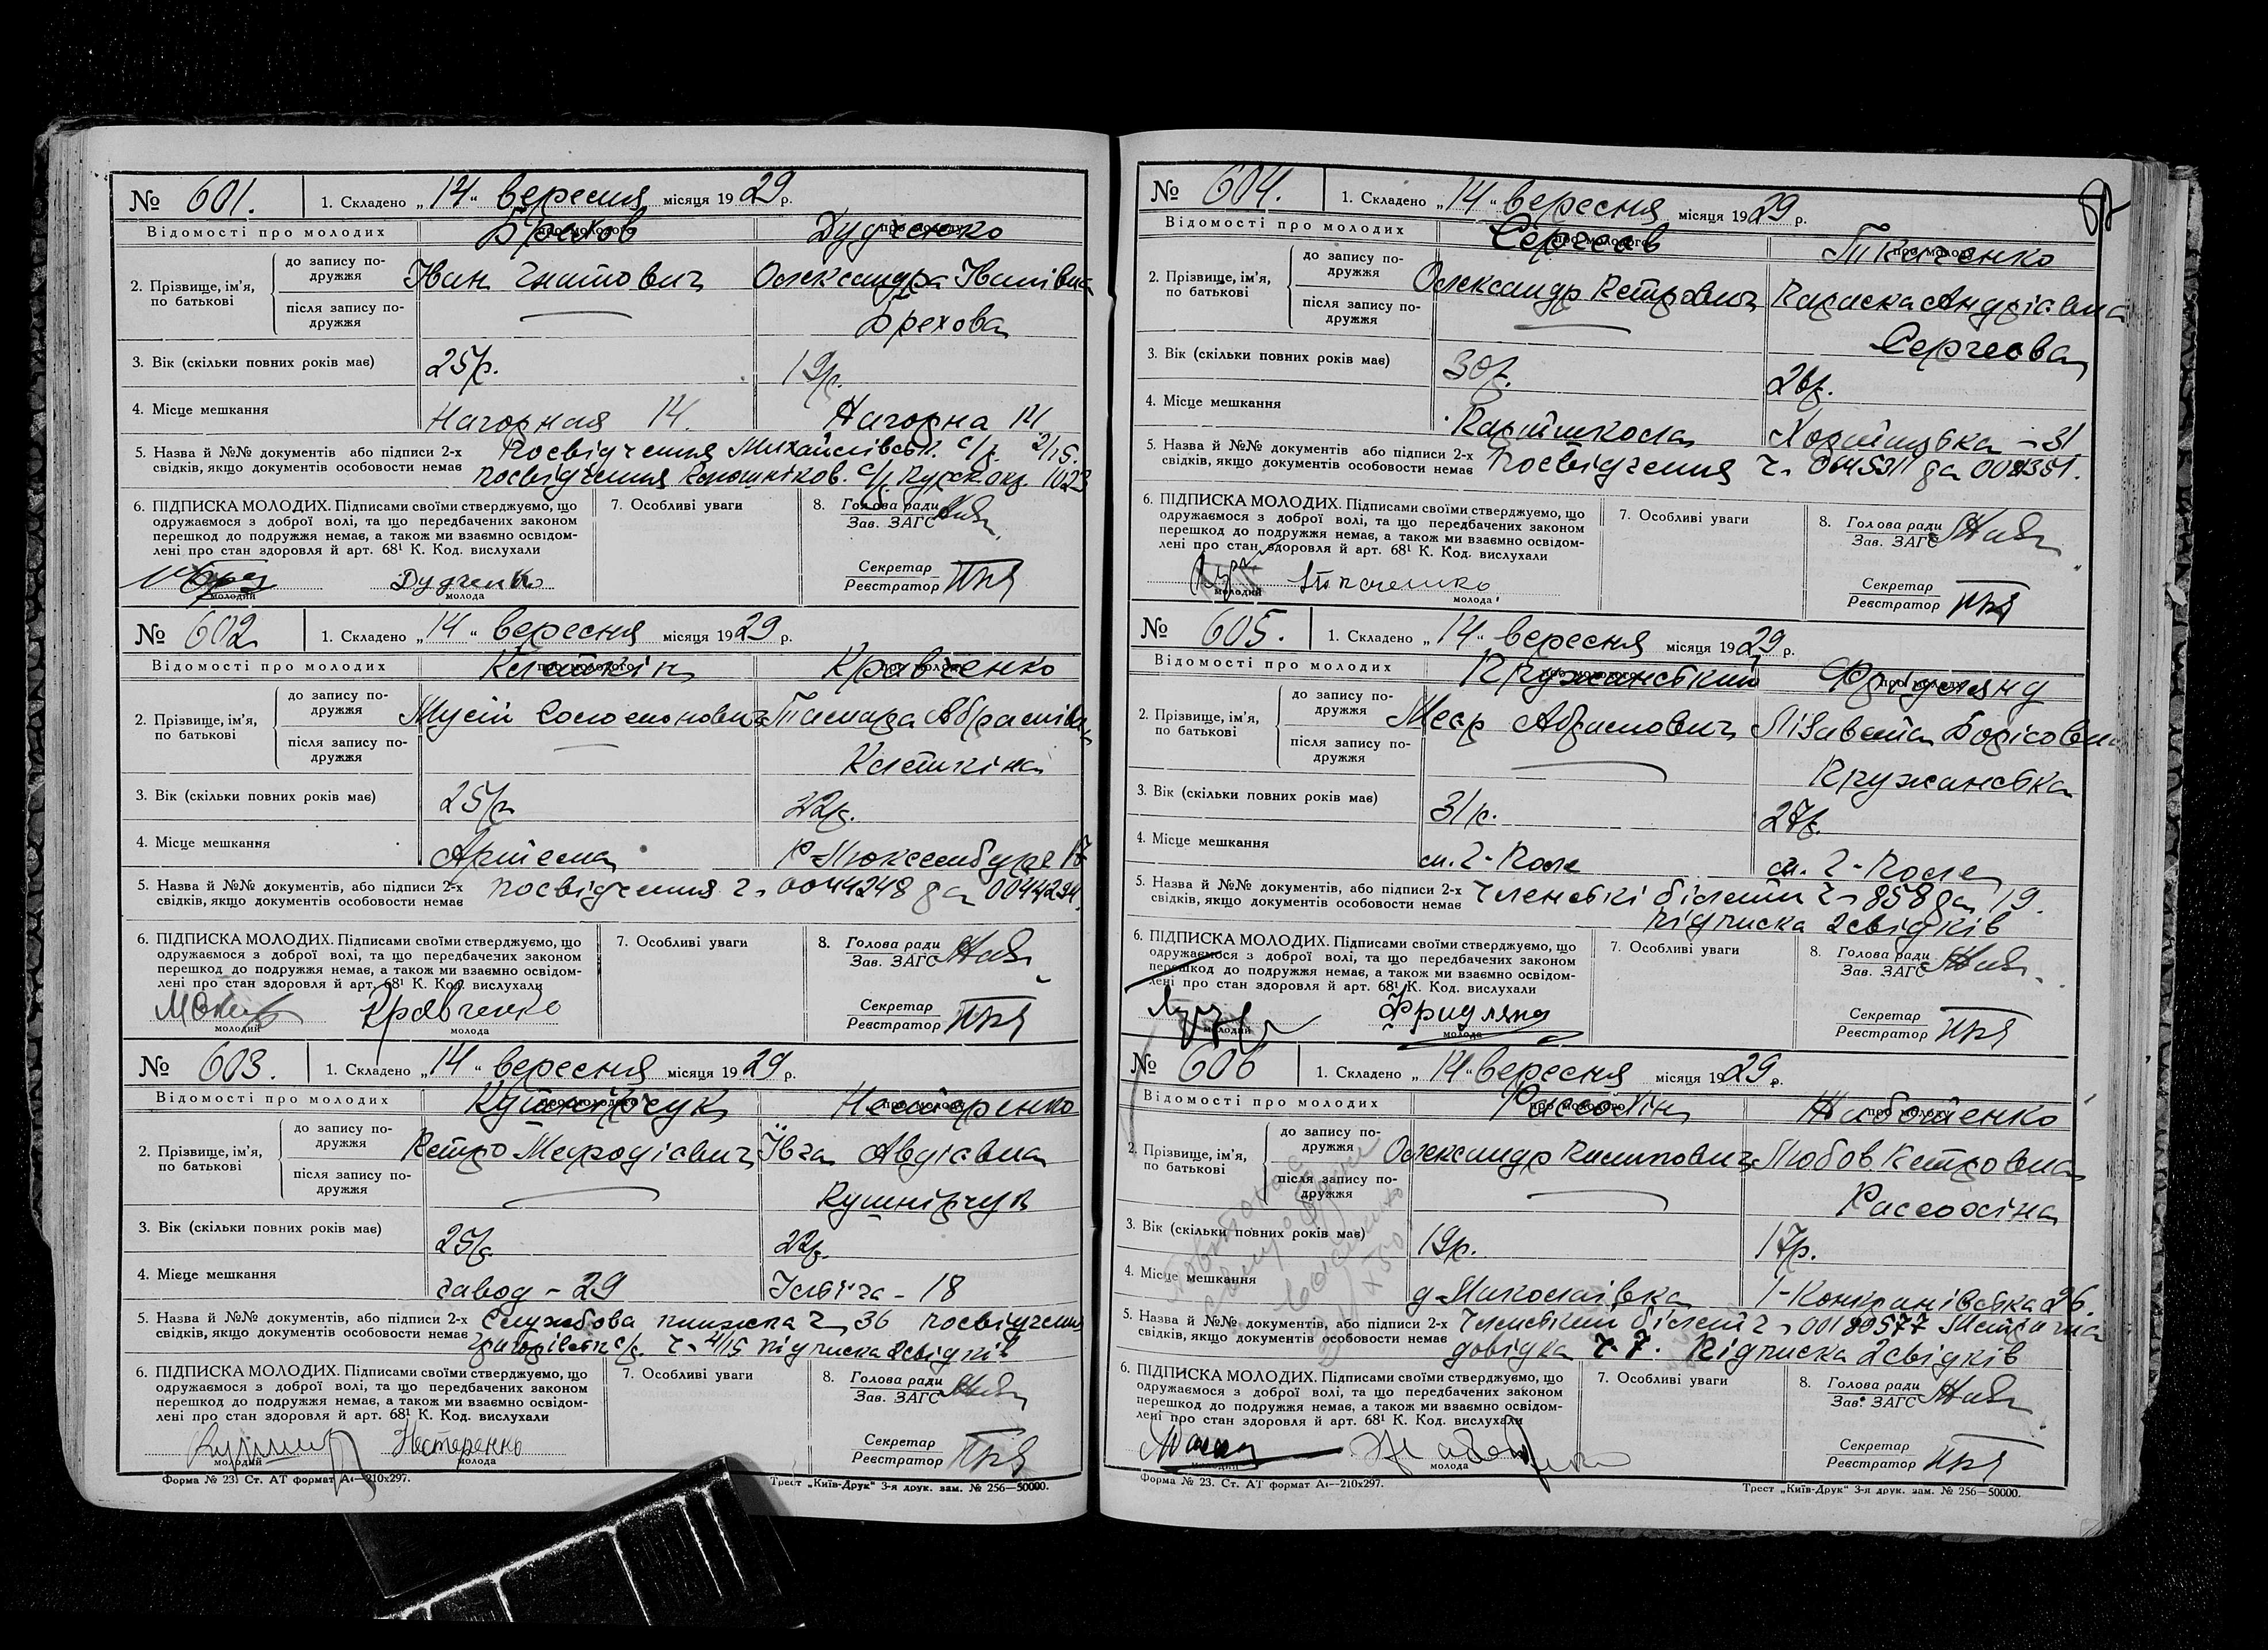 № 601. 1. Складено „14“ вересня місяця 1929 р.
Відомості про молодих про молодого про молоду
Брехов Дудченко
2. Прізвище, ім’я, по батькові
до запису подружжя Іван Гнатович Олександра Іванівна
після запису подружжя — Брехова
3. Вік (скільки повних років має) 25р. 19р.
4. Місце мешкання Нагорная 14. Нагорна 14
5. Назва й №№ документів або підписи 2-х Посвідчення Михайлівськ. с/р. 2/15.
свідків, якщо документів особовости немає посвідчення с/р. 1023
6. ПІДПИСКА МОЛОДИХ. Підписами своїми стверджуємо, що
одружаємося з доброї волі, та що передбачених законом
перешкод до подружжя немає, а також ми взаємно освідом-
лені про стан здоровля й арт. 68¹ К. Код. вислухали
молодий Дудченко молода
7. Особливі уваги
8. Голова ради
Зав. ЗАГС
Секретар
Реєстратор
№ 602 1. Складено „14“ вересня місяця 1929 р.
Відомості про молодих про молодого про молоду
Клоткін Кравченко
2. Прізвище, ім’я, по батькові
до запису подружжя Мусій Соломонович Тамара Абрамівна
після запису подружжя —
3. Вік (скільки повних років має) 25р. 22р.
4. Місце мешкання Артема Р-Люксембург 17
5. Назва й №№ документів, або підписи 2-х посвідчення ч. 0044248 да 0044294.
свідків, якщо документів особовости немає
6. ПІДПИСКА МОЛОДИХ. Підписами своїми стверджуємо, що
одружаємося з доброї волі, та що передбачених законом
перешкод до подружжя немає, а також ми взаємно освідом-
лені про стан здоровля й арт. 68¹ К. Код. вислухали
молодий Кравченко молода
7. Особливі уваги
8. Голова ради
Зав. ЗАГС
Секретар
Реєстратор
№ 603. 1. Складено „14“ вересня місяця 1929 р.
Відомості про молодих про молодого про молоду
Кушнірчук Нестеренко
2. Прізвище, ім’я, по батькові
до запису подружжя Петро Мефодієвич Ївга Авдієвна
після запису подружжя — Кушнірчук
3. Вік (скільки повних років має) 25р. 22р.
4. Місце мешкання завод - 29 Ілліча - 18
5. Назва й №№ документів, або підписи 2-х Службова книжка ч. 36 посвідчення
свідків, якщо документів особовости немає с/р. ч. 4/15 підписка 2свідків
6. ПІДПИСКА МОЛОДИХ. Підписами своїми стверджуємо, що
одружаємося з доброї волі, та що передбачених законом
перешкод до подружжя немає, а також ми взаємно освідом-
лені про стан здоровля й арт. 68¹ К. Код. вислухали
молодий Нестеренко молода
7. Особливі уваги
8. Голова ради
Зав. ЗАГС
Секретар
Реєстратор
Форма № 23. Ст. АТ формат А₄—210х297.
Трест „Київ-Друк“ 3-я друк. зам. № 256—50000.
№ 604. 1. Складено „14“ вересня місяця 1929 р.
Відомості про молодих про молодого про молоду
Сергеєв Ткаченко
2. Прізвище, ім’я, по батькові
до запису подружжя Олександр Петрович Параска Андрієвна
після запису подружжя — Сергеєва
3. Вік (скільки повних років має) 30р. 26р.
4. Місце мешкання Партшкола - 31
5. Назва й №№ документів або підписи 2-х Посвідчення ч.
свідків, якщо документів особовости немає
6. ПІДПИСКА МОЛОДИХ. Підписами своїми стверджуємо, що
одружаємося з доброї волі, та що передбачених законом
перешкод до подружжя немає, а також ми взаємно освідом-
лені про стан здоровля й арт. 68¹ К. Код. вислухали
молодий Ткаченко молода
7. Особливі уваги
8. Голова ради
Зав. ЗАГС
Секретар
Реєстратор
№ 605. 1. Складено „14“ вересня місяця 1929 р.
Відомості про молодих про молодого про молоду
Кружанський Фрідлянд
2. Прізвище, ім’я, по батькові
до запису подружжя Меєр Абрамович Лізавета Борісовна
після запису подружжя — Кружанська
3. Вік (скільки повних років має) 31р. 27р.
4. Місце мешкання
5. Назва й №№ документів, або підписи 2-х членські білети ч. 858 да 19.
свідків, якщо документів особовости немає підписка 2свідків
6. ПІДПИСКА МОЛОДИХ. Підписами своїми стверджуємо, що
одружаємося з доброї волі, та що передбачених законом
перешкод до подружжя немає, а також ми взаємно освідом-
лені про стан здоровля й арт. 68¹ К. Код. вислухали
молодий Фридлянд молода
7. Особливі уваги
8. Голова ради
Зав. ЗАГС
Секретар
Реєстратор
№ 606 1. Складено „14“ вересня місяця 1929 р.
Відомості про молодих про молодого про молоду
Рассохін Жаботенко
2. Прізвище, ім’я, по батькові
до запису подружжя Олександр Пилипович Любов Петровна
після запису подружжя — Рассохіна
3. Вік (скільки повних років має) 19р. 17р.
4. Місце мешкання д-Миколаївка 26.
5. Назва й №№ документів, або підписи 2-х Членський білет ч. 00180577 Метрична
свідків, якщо документів особовости немає довідка ч. 7. Підписка 2свідків
6. ПІДПИСКА МОЛОДИХ. Підписами своїми стверджуємо, що
одружаємося з доброї волі, та що передбачених законом
перешкод до подружжя немає, а також ми взаємно освідом-
лені про стан здоровля й арт. 68¹ К. Код. вислухали
молодий молода
7. Особливі уваги
8. Голова ради
Зав. ЗАГС
Секретар
Реєстратор
Форма № 23. Ст. АТ формат А₄—210х297.
Трест „Київ-Друк“ 3-я друк. зам. № 256—50000.